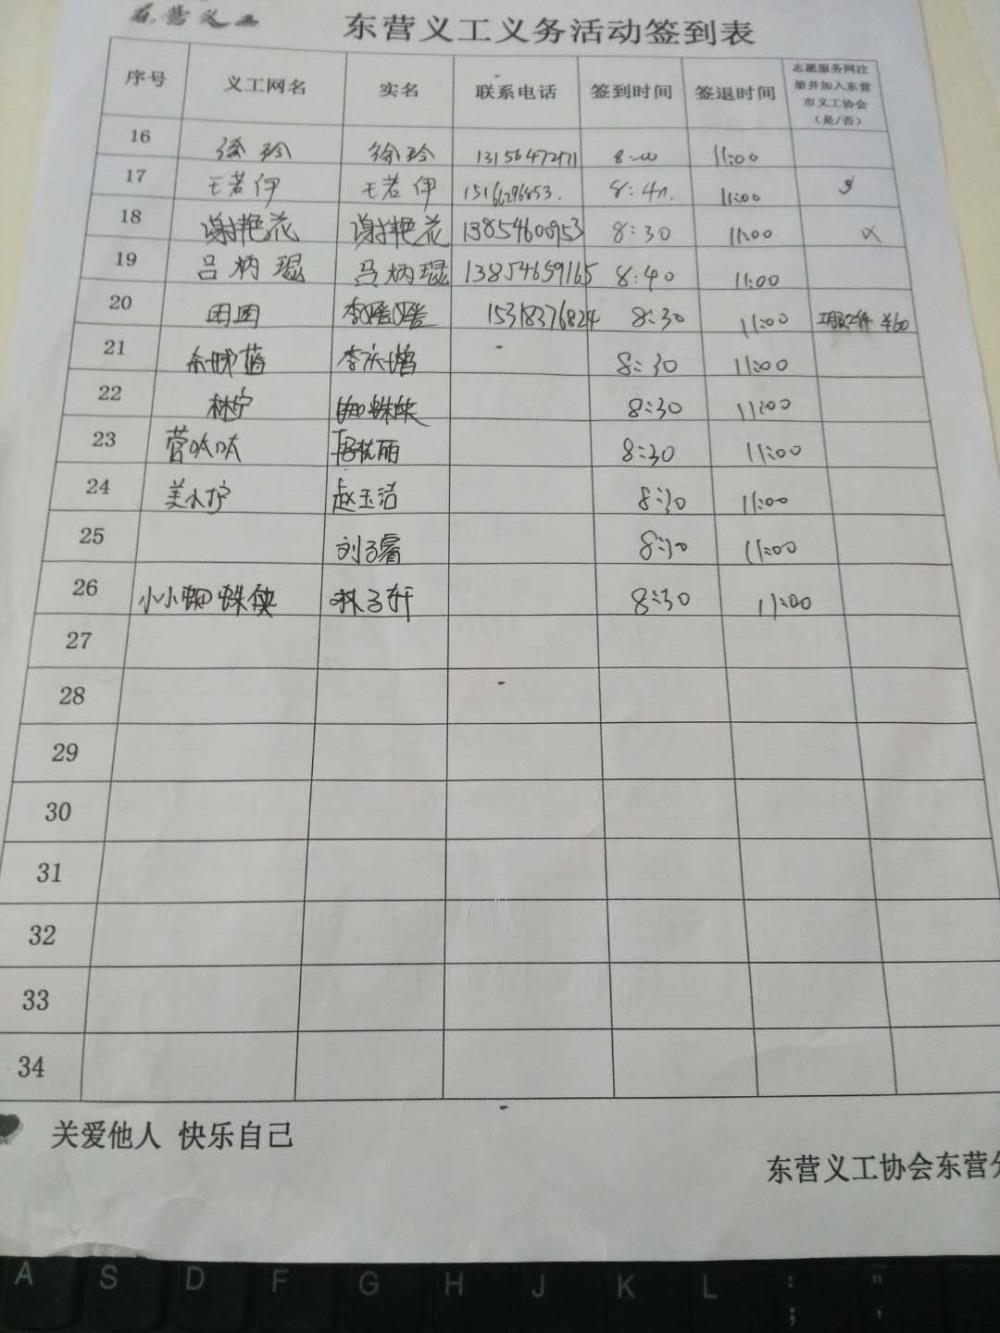 东营义工
东营义工义务活动签到表
序号 义工网名 实名 联系电话 签到时间 签退时间 志愿服务网注册并加入东营市义工协会（是/否）
16 徐玲 徐玲 8:00 11:00
17 王若伊 王若伊 8:40 11:00
18 谢艳花 谢艳花 13854600953 8:30 11:00 X
19 吕炳琨 吕炳琨 13854659165 8:40 11:00
20 团团 15318376824 8:30 11:00 ¥60
21 李庆增 8:30 11:00
22 林宁 蜘蛛侠 8:30 11:00
23 营呔呔 8:30 11:00
24 赵玉洁 8:30 11:00
25 刘子睿 8:30 11:00
26 小小蜘蛛侠 林子轩 8:30 11:00
27
28
29
30
31
32
33
34
关爱他人 快乐自己
东营义工协会东营分
A S D F G H J K L : ; " '